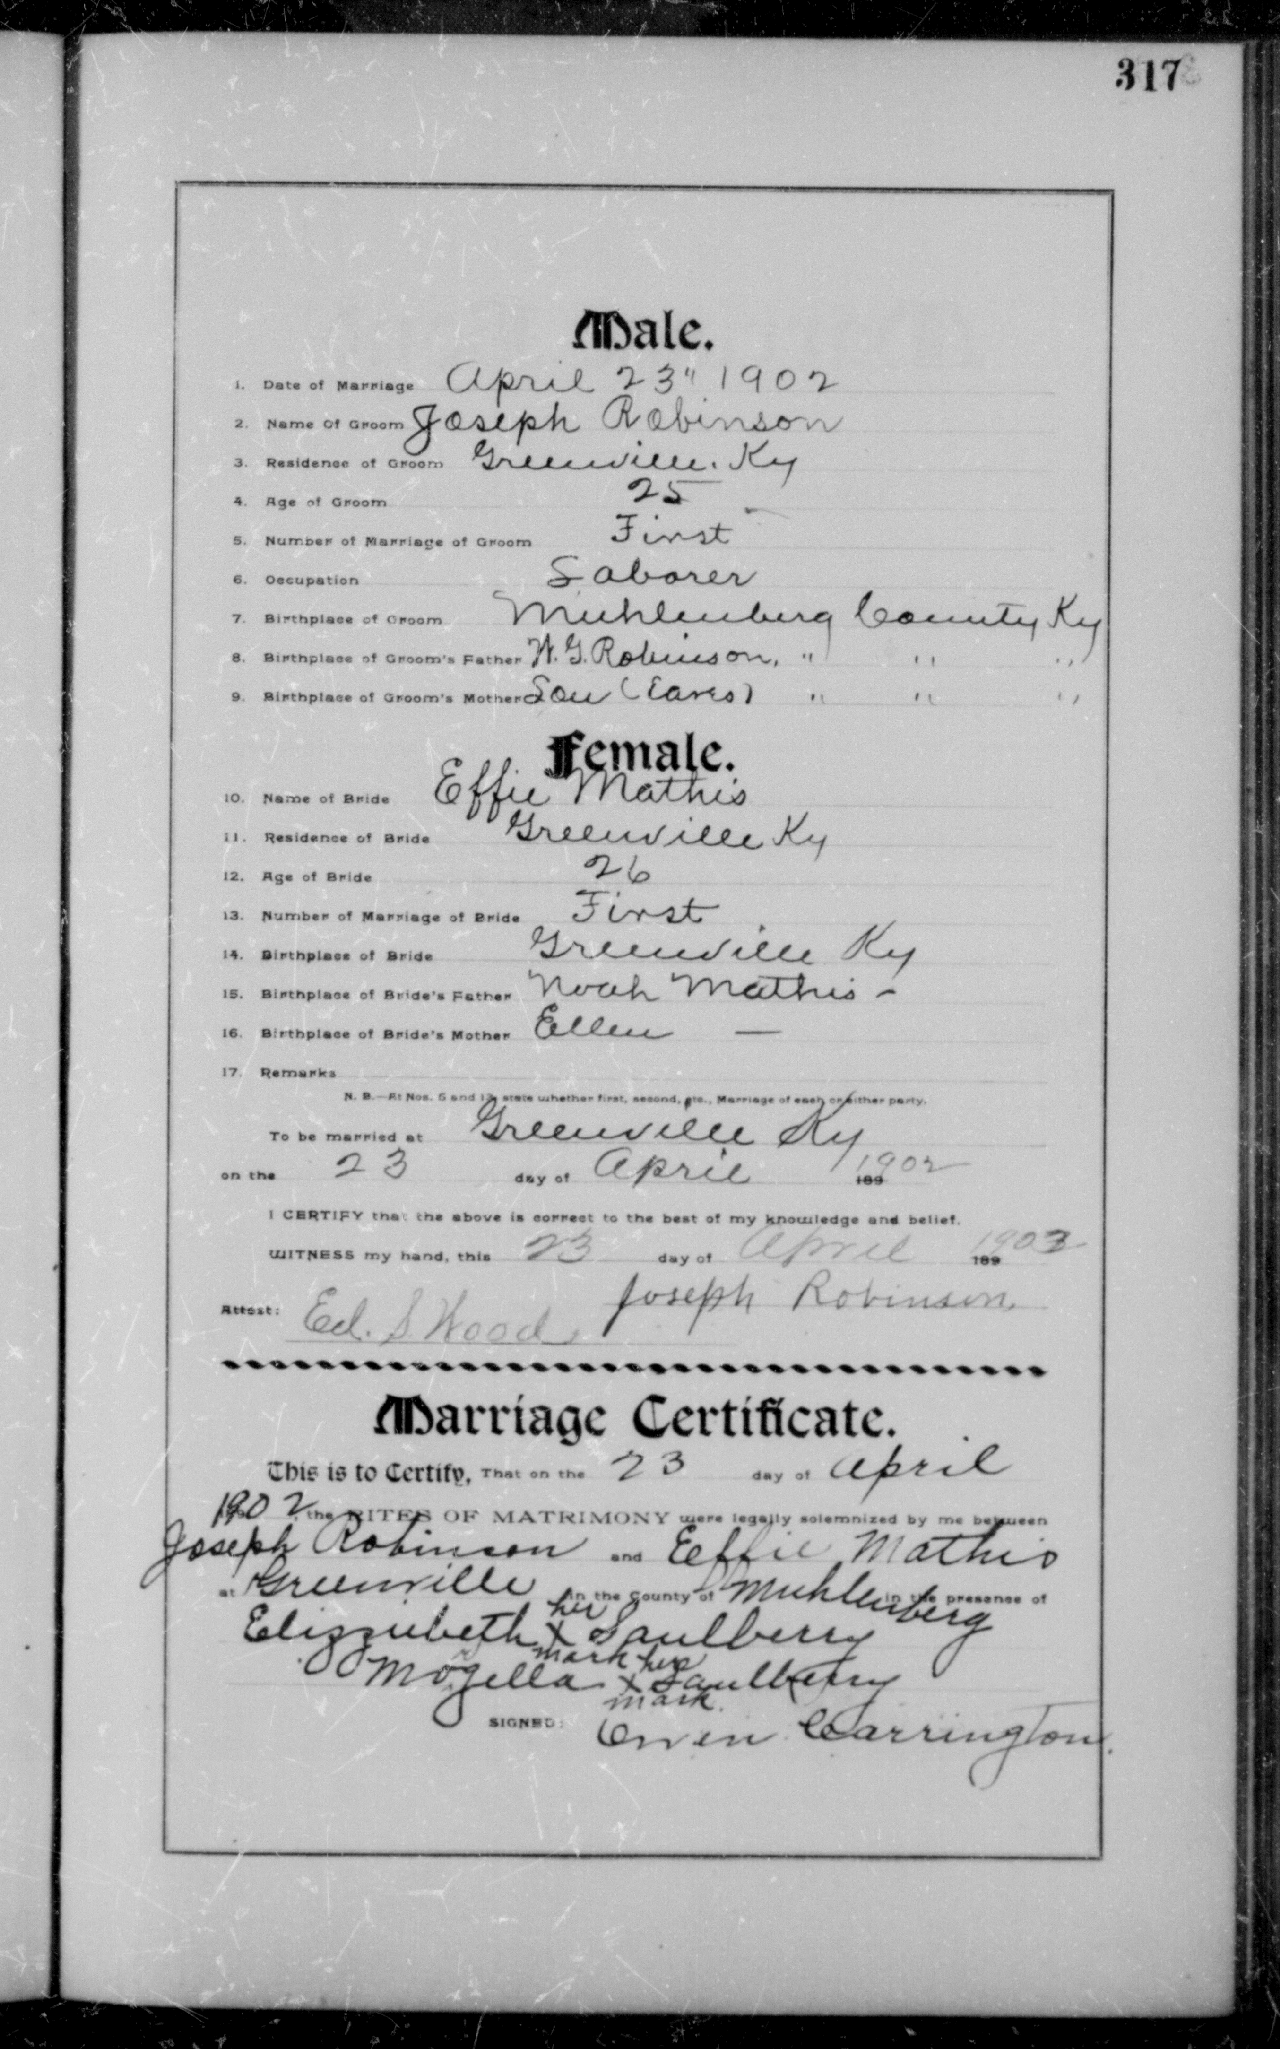 317
Male.
1. Date of Marriage April 23" 1902
2. Name Of Groom Joseph Robinson
3. Residence of Groom Greenville. Ky
4. Age of Groom 25
5. Number of Marriage of Groom First
6. Occupation Laborer
7. Birthplace of Groom Muhlenberg County Ky
8. Birthplace of Groom's Father W. G. Robinson, " " "
9. Birthplace of Groom's Mother Lou (Eaves) " " "
Female.
10. Name of Bride Effie Mathis
11. Residence of Bride Greenville Ky
12. Age of Bride 26
13. Number of Marriage of Bride First
14. Birthplace of Bride Greenville Ky
15. Birthplace of Bride's Father Noah Mathis -
16. Birthplace of Bride's Mother Ellen —
17. Remarks
N. B.—At Nos. 5 and 13, state whether first, second, etc., Marriage of each or either party.
To be married at Greenville Ky
on the 23 day of April 1902 189
I CERTIFY that the above is correct to the best of my knowledge and belief.
WITNESS my hand, this 23 day of April 1902 189
Joseph Robinson
Attest: Ed. S Wood,
Marriage Certificate.
This is to Certify, That on the 23 day of April
1902, the RITES OF MATRIMONY were legally solemnized by me between
Joseph Robinson and Effie Mathis
at Greenville in the County of Muhlenberg in the presence of
her
Elizzubeth X Saulberry
mark her
Mozella X Saulberry
mark.
SIGNED: Owen Carrington.